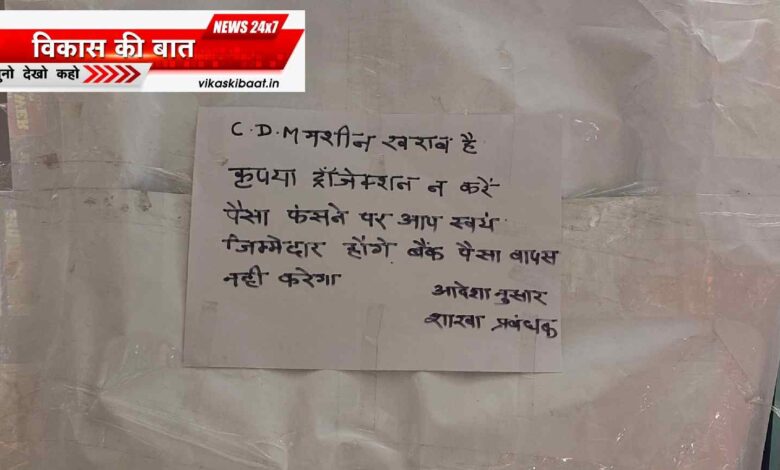 NEWS 24x7
विकास की बात
नो देखो कहो
vikaskibaat.in
C.D.M मशीन खराब है
कृपया ट्रांजेक्शन न करें
पैसा फंसने पर आप स्वयं
जिम्मेदार होंगे, बैंक पैसा वापस
नही करेगा
आदेशानुसार
शाखा प्रबंधक